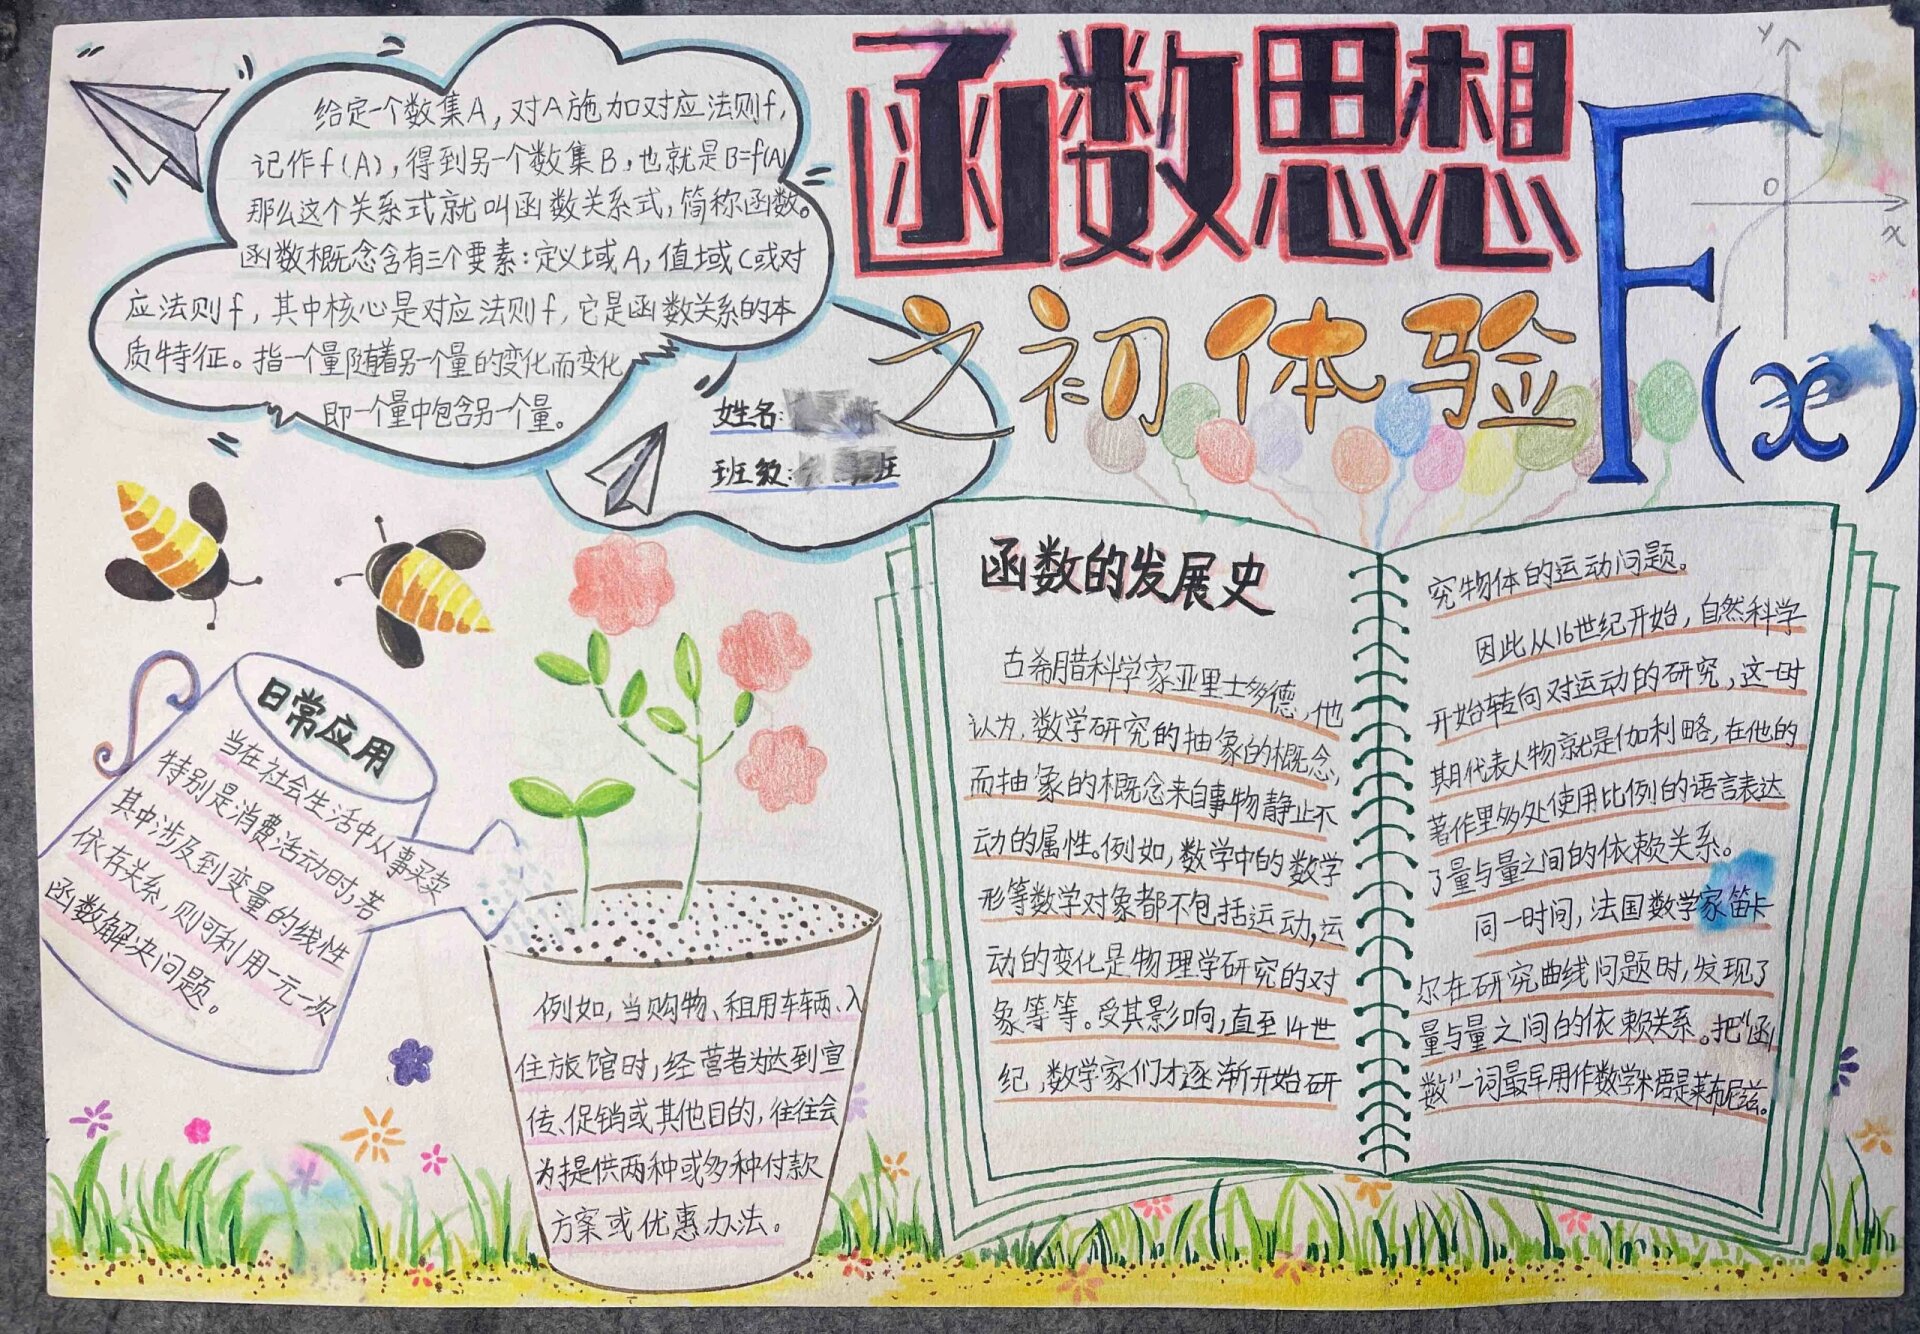 函数思想
之初体验
F(x)
y
0
x
给定一个数集A,对A施加对应法则f,
记作f(A),得到另一个数集B,也就是B=f(A)
那么这个关系式就叫函数关系式,简称函数。
函数概念含有三个要素:定义域A,值域C或对
应法则f,其中核心是对应法则f,它是函数关系的本
质特征。指一个量随着另一个量的变化而变化
即一个量中包含另一个量。
姓名:
班级: 班
日常应用
当在社会生活中从事买卖
特别是消费活动时,若
其中涉及到变量的线性
依存关系,则可利用一元一次
函数解决问题。
例如,当购物、租用车辆、入
住旅馆时,经营者为达到宣
传、促销或其他目的,往往会
为提供两种或多种付款
方案或优惠办法。
函数的发展史
古希腊科学家亚里士多德,他
认为,数学研究的抽象的概念,
而抽象的概念来自事物静止不
动的属性。例如,数学中的数学
形等数学对象都不包括运动,运
动的变化是物理学研究的对
象等等。受其影响,直至14世
纪,数学家们才逐渐开始研
究物体的运动问题。
因此从16世纪开始,自然科学
开始转向对运动的研究,这一时
期代表人物就是伽利略,在他的
著作里多处使用比例的语言表达
了量与量之间的依赖关系。
同一时间,法国数学家笛卡
尔在研究曲线问题时,发现了
量与量之间的依赖关系。把“函
数”一词最早用作数学术语是莱布尼兹。